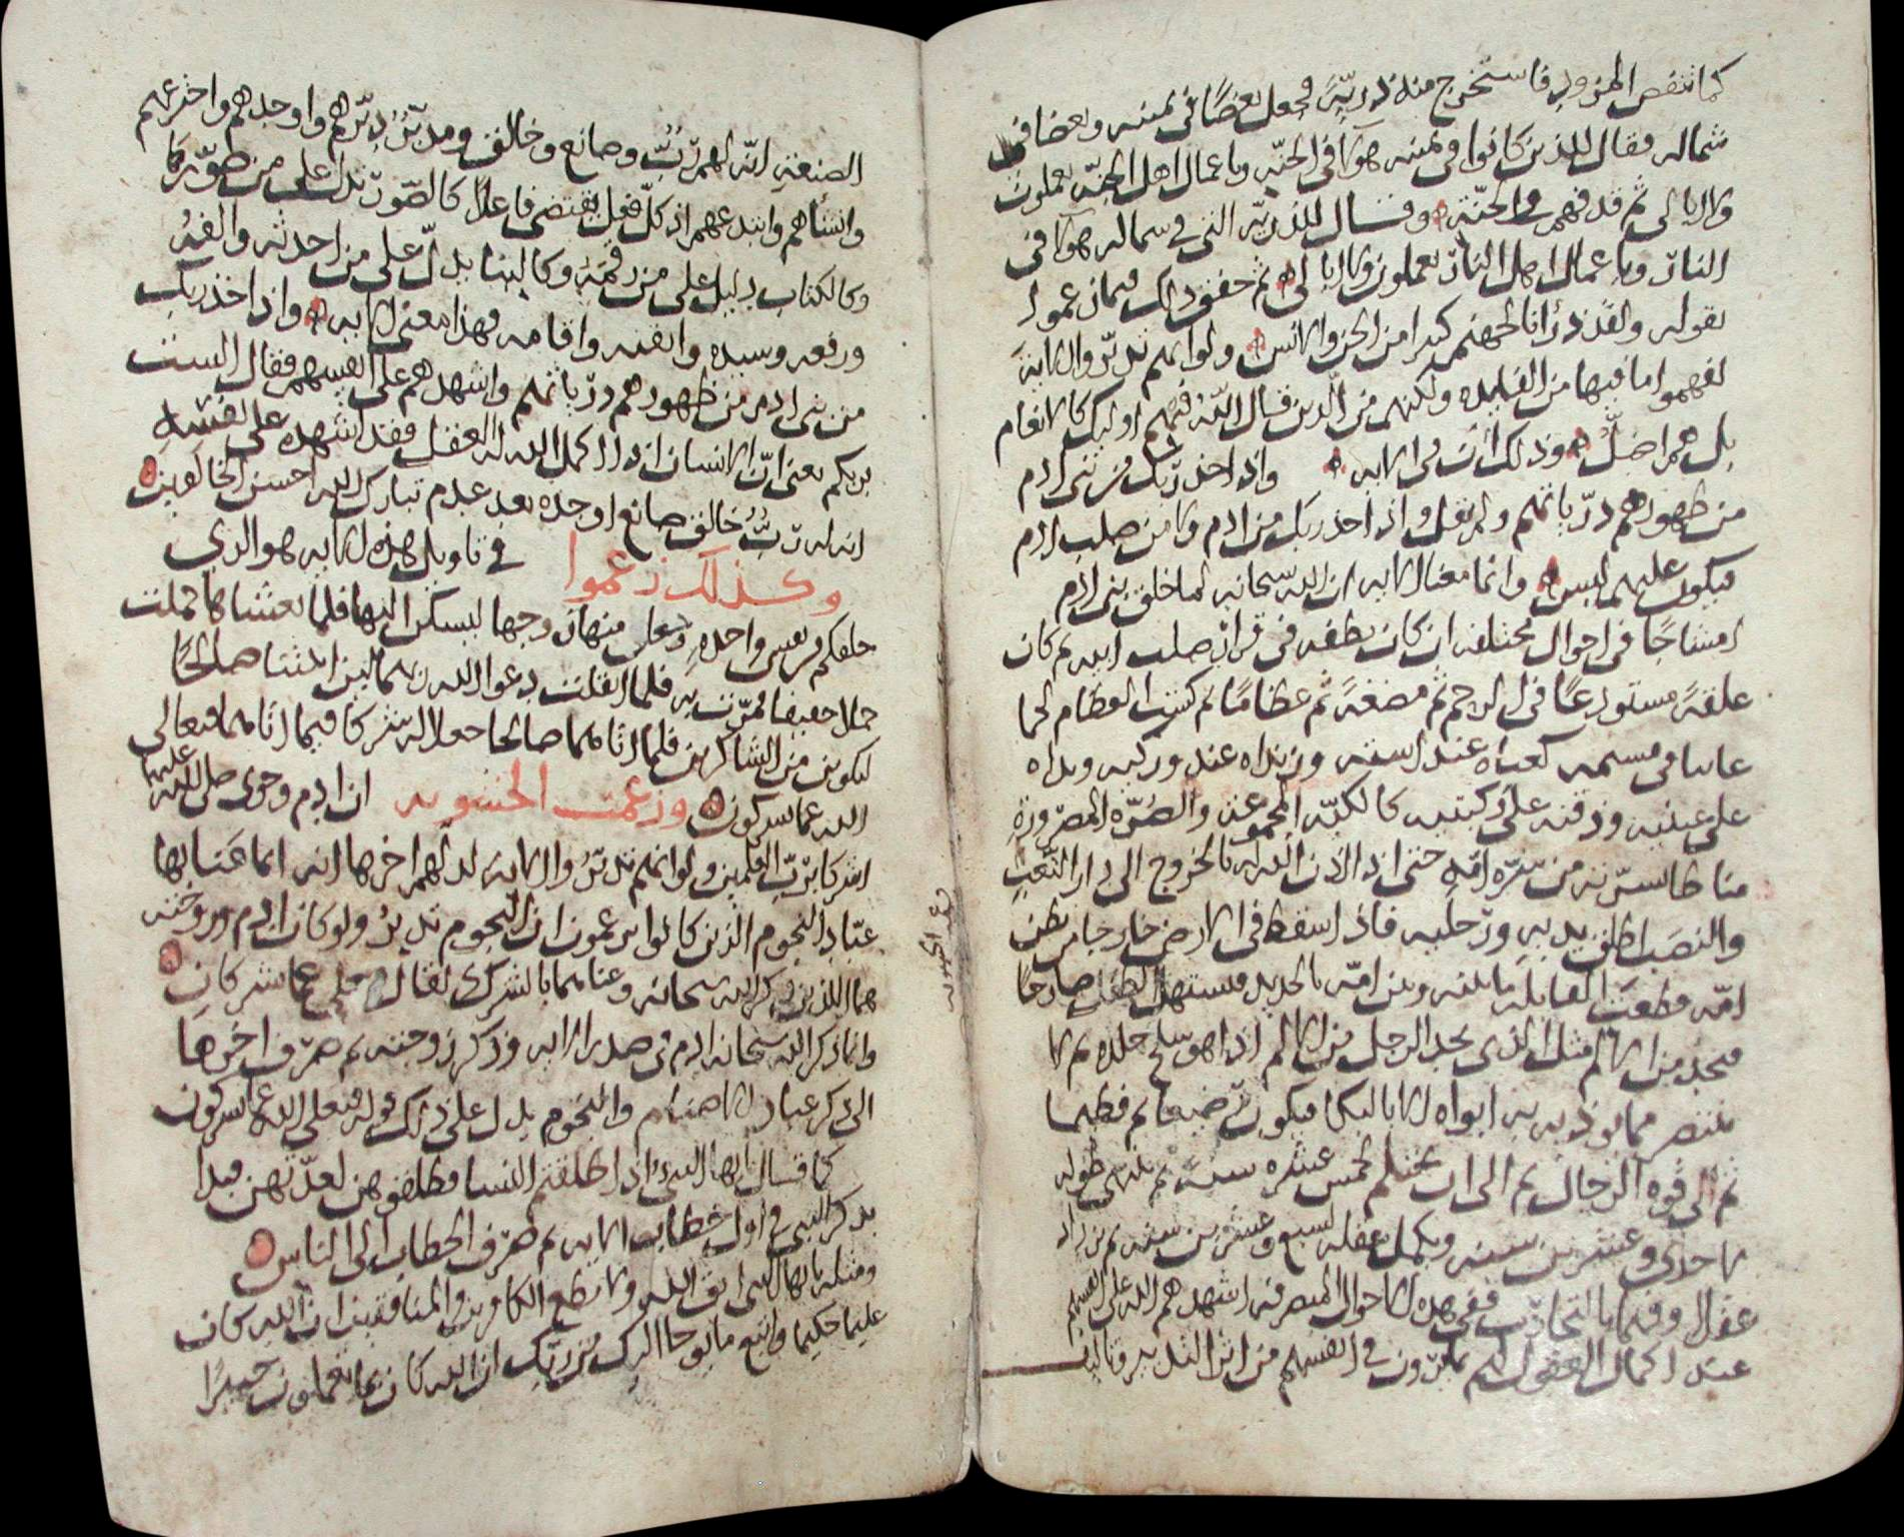 كما تنفض المزود فاستخرج منه ذريّةً فجعل بعضًا في يمينه وبعضا في
شماله فقال للذين كانوا في يمينه هولا في الجنّه وباعمال اهل الجنّه يعملون
ولا ابالي ثم قذفهم في الجنّة وقال للذريّه التي في شماله هولا في
النار وباعمال اهل النار يعملون ولا ابالي ثم حقق ذلك فيما زعموا
بقوله ولقد ذرأنا لجهنم كثيرا من الجن والانس ولو انهم تدبّروا الاية
لفهموا ما فيها من الفايده ولكنهم من الذين قال الله فيهم اوليك كالانعام
بل هم اضلّ وذلك ان في الايه واذ اخذ ربّك من بني ادم
من ظهورهم ذرّياتهم ولم يقل واذ اخذ ربك من ادم ولا من صلب ادم
فيكون عليهم لبس وانما معنا الايه ان الله سبحانه لما خلق بني ادم
امشاجًا في احوال مختلفه ان كان نطفه في قرار صلب ابيه ثم كان
علقةً مستودعًا في الرحم ثم مضغةً ثم عظامًا ثم كسيت العظام لحما
غايبا في مشيمه كعباه عند استه وزنداه عند وركيه ويداه
على عينيه وذقنه على ركبتيه كالكبّه المجموعه والصُرّه المصروره
مناطا سرّته من سرّه امّه حتى اذا اذن الله له بالخروج الى دار التعب
والنصب اطلق يديه ورجليه فاذا سقط في الارض خارجا من بطن
امّه قطعت القابله ما بينه وبين امّه بالحديد فيستهل الطفل صارخًا
فيجد من الالم مثل الذي يجد الرجل من الالم اذا هو سلخ جلده ثم لا
ينتصر مما يوذيه به ابواه الا بالبكا فيكون رضيعا ثم فطيما
ثم الى قوه الرجال ثم الى ان يحتلم لخمس عشره سنة ثم ينتهي طوله
لاحدى وعشرين سنه ويكمل عقله لسبع وعشرين سنه ثم يزداد
عقلا وفهما بالتجارب ففي هذه الاحوال المتصرفه اشهدهم الله على انفسهم
عند اكمال العقول لهم بما يرون في انفسهم من اثر التدبير وتاليف
الصنعه انّه لهم ربٌّ وصانع وخالق ومدبّرٌ دبّرهم واوجدهم واخترعهم
وانشاهم وابتدعهم اذ كلّ فعل يقتضي فاعلًا كالصور تدل على من صوّرها
وكالكتاب دليل على من رقمه وكالبنا يدلّ على من احدثه والفه
ورفعه وسيده واتقنه واقامه فهذا معنى الايه واذ اخذ ربك
من بني ادم من ظهورهم ذرّياتهم واشهدهم على انفسهم فقال الست
بربكم يعني انّ الانسان اذا اكمل الله له العقل فقد اشهده على نفسه
انه له ربٌّ خالق صانع اوجده بعد عدم تبارك الله احسن الخالقين
وكذلك زعموا في تاويل هذه الايه هو الذي
خلقكم من نفس واحده وجعل منها زوجها ليسكن اليها فلما تغشاها حملت
حملا خفيفا فمرّت به فلما اثقلت دعوا الله ربهما لين اتيتنا صالحًا
لنكونن من الشاكرين فلما اتاهما صالحا جعلا له شركا فيما اتاهما فتعالى
الله عما يشركون وزعمت الحشويه ان ادم وحوى صلى الله عليهما
اشركا بربّ العلمين ولو انهم تدبّروا الاية لدلّهم اخرها انه انما عنا بها
عبّاد النجوم الذين كانوا يزعمون ان النجوم تدبّر ولو كان ادم وزوجته
هما اللذين ذكر الله سبحانه وعناهما بالشرك لقال فتعالى عما يشركان
وانما ذكر الله سبحانه ادم في صدر الايه وذكر زوجته ثم صرّف اخرها
الى ذكر عباد الاصنام والنجوم يدل على ذلك قوله فتعالى الله عما يشركون
كما قال يا ايها النبي اذا طلقتم النسا فطلقوهن لعدّتهن فبدا
بذكر النبي في اول خطاب الايه ثم صرّف الخطاب الى الناس
ومثله يا ايها النبي اتق الله ولا تطع الكافرين والمنافقين ان الله كان
عليما حكيما واتبع ما يوحا اليك من ربّك ان الله كان بما تعملون خبيرًا